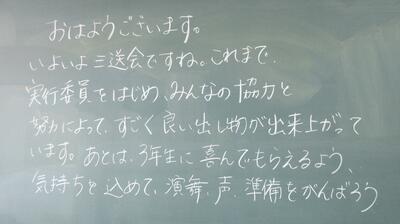 おはようございます。
いよいよ三送会ですね。これまで、
実行委員をはじめ、みんなの協力と
努力によって、すごく良い出し物が出来上がって
います。あとは、3年生に喜んでもらえるよう、
気持ちを込めて、演舞、声、準備をがんばろう